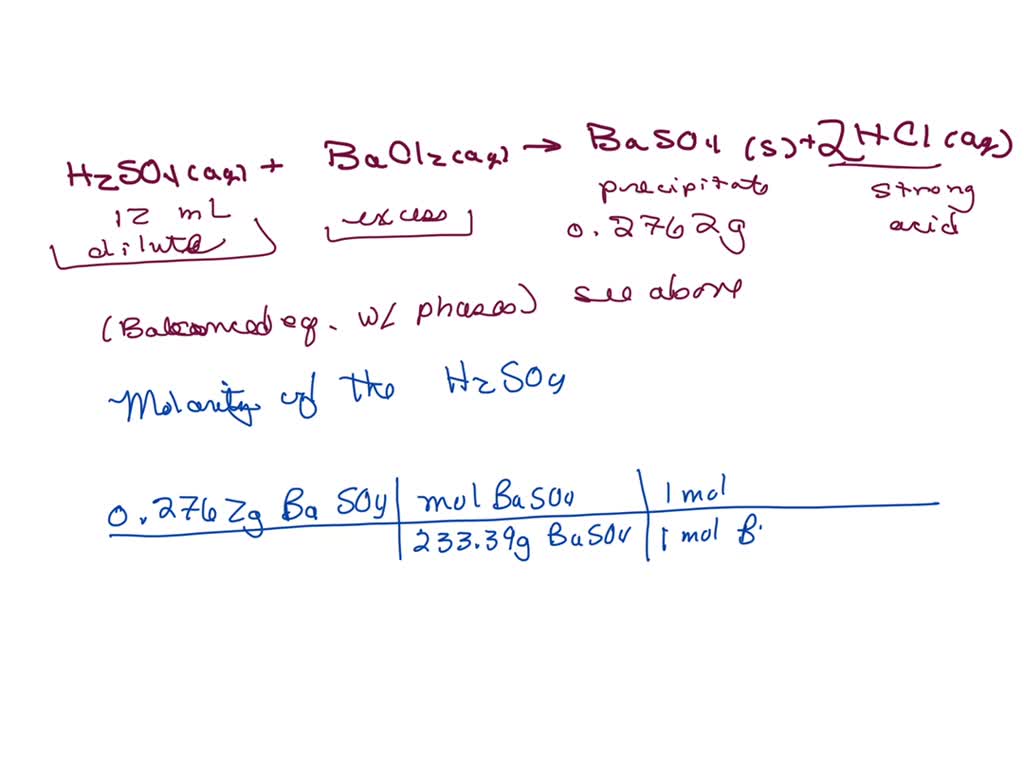 H2SO4(aq) + BaCl2(aq) → BaSO4 (s) + 2HCl(aq)
12 mL excess precipitate strong
dilute 0.2762g acid
(Balanced eq. w/ phases) see above
Molarity of the H2SO4
0.2762g BaSO4 | mol BaSO4 | 1 mol
233.39g BaSO4 | 1 mol B